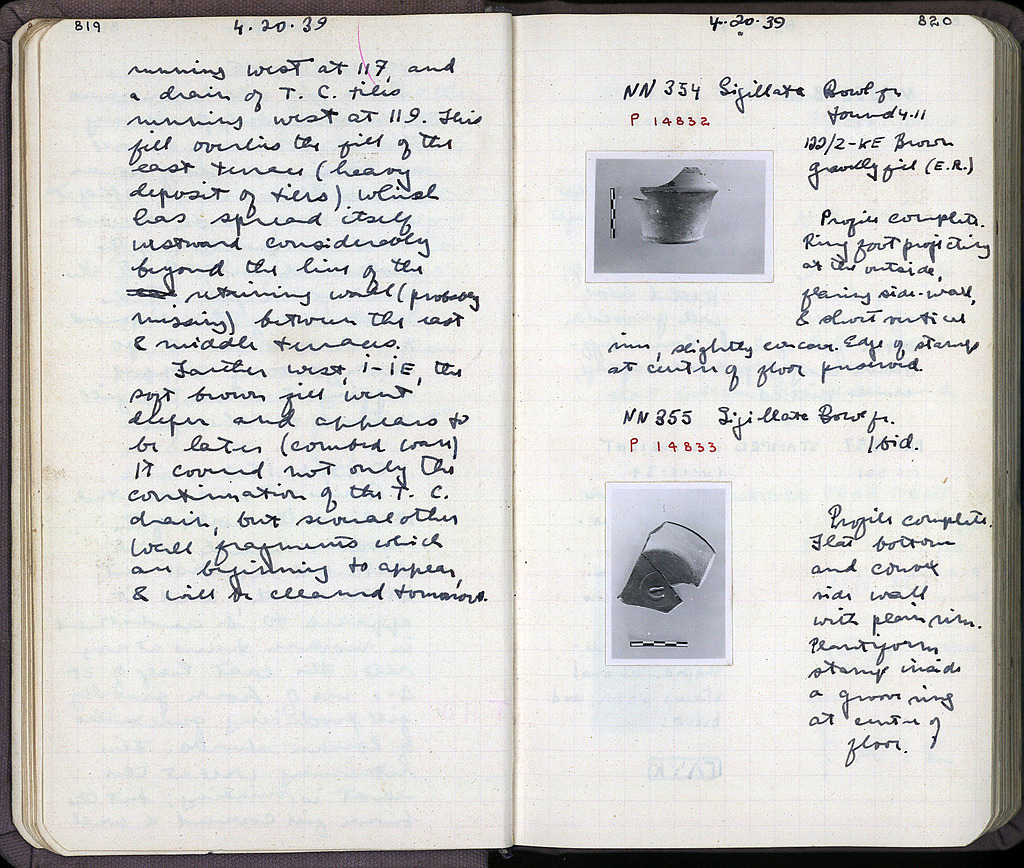 819
4·20·39
running west at 117, and
a drain of T. C. tiles
running west at 119. This
fill overlies the fill of the
east terrace (heavy
deposit of tiles) which
has spread itself
westward considerably
beyond the line of the
retaining wall (probably
missing) between the east
& middle terraces.
Farther west, 1-1E, the
soft brown fill went
deeper and appears to
be later (combed ware)
It covered not only the
continuation of the T. C.
drain, but several other
wall fragments which
are beginning to appear,
& will be cleaned tomorrow.
4·20·39
820
NN 354 Sigillata Bowl fr.
P 14832
found 4.11
122/2-KE Brown
gravelly fill (E.R.)
Profile complete.
Ring foot projecting
at the outside,
flaring side-wall,
& short vertical
rim, slightly concave. Edge of stamp
at centre of floor preserved.
NN 355 Sigillata Bowl fr.
P 14833
Ibid.
Profile complete.
Flat bottom
and convex
side wall
with plain rim.
Plantiform
stamp inside
a groove ring
at centre of
floor.